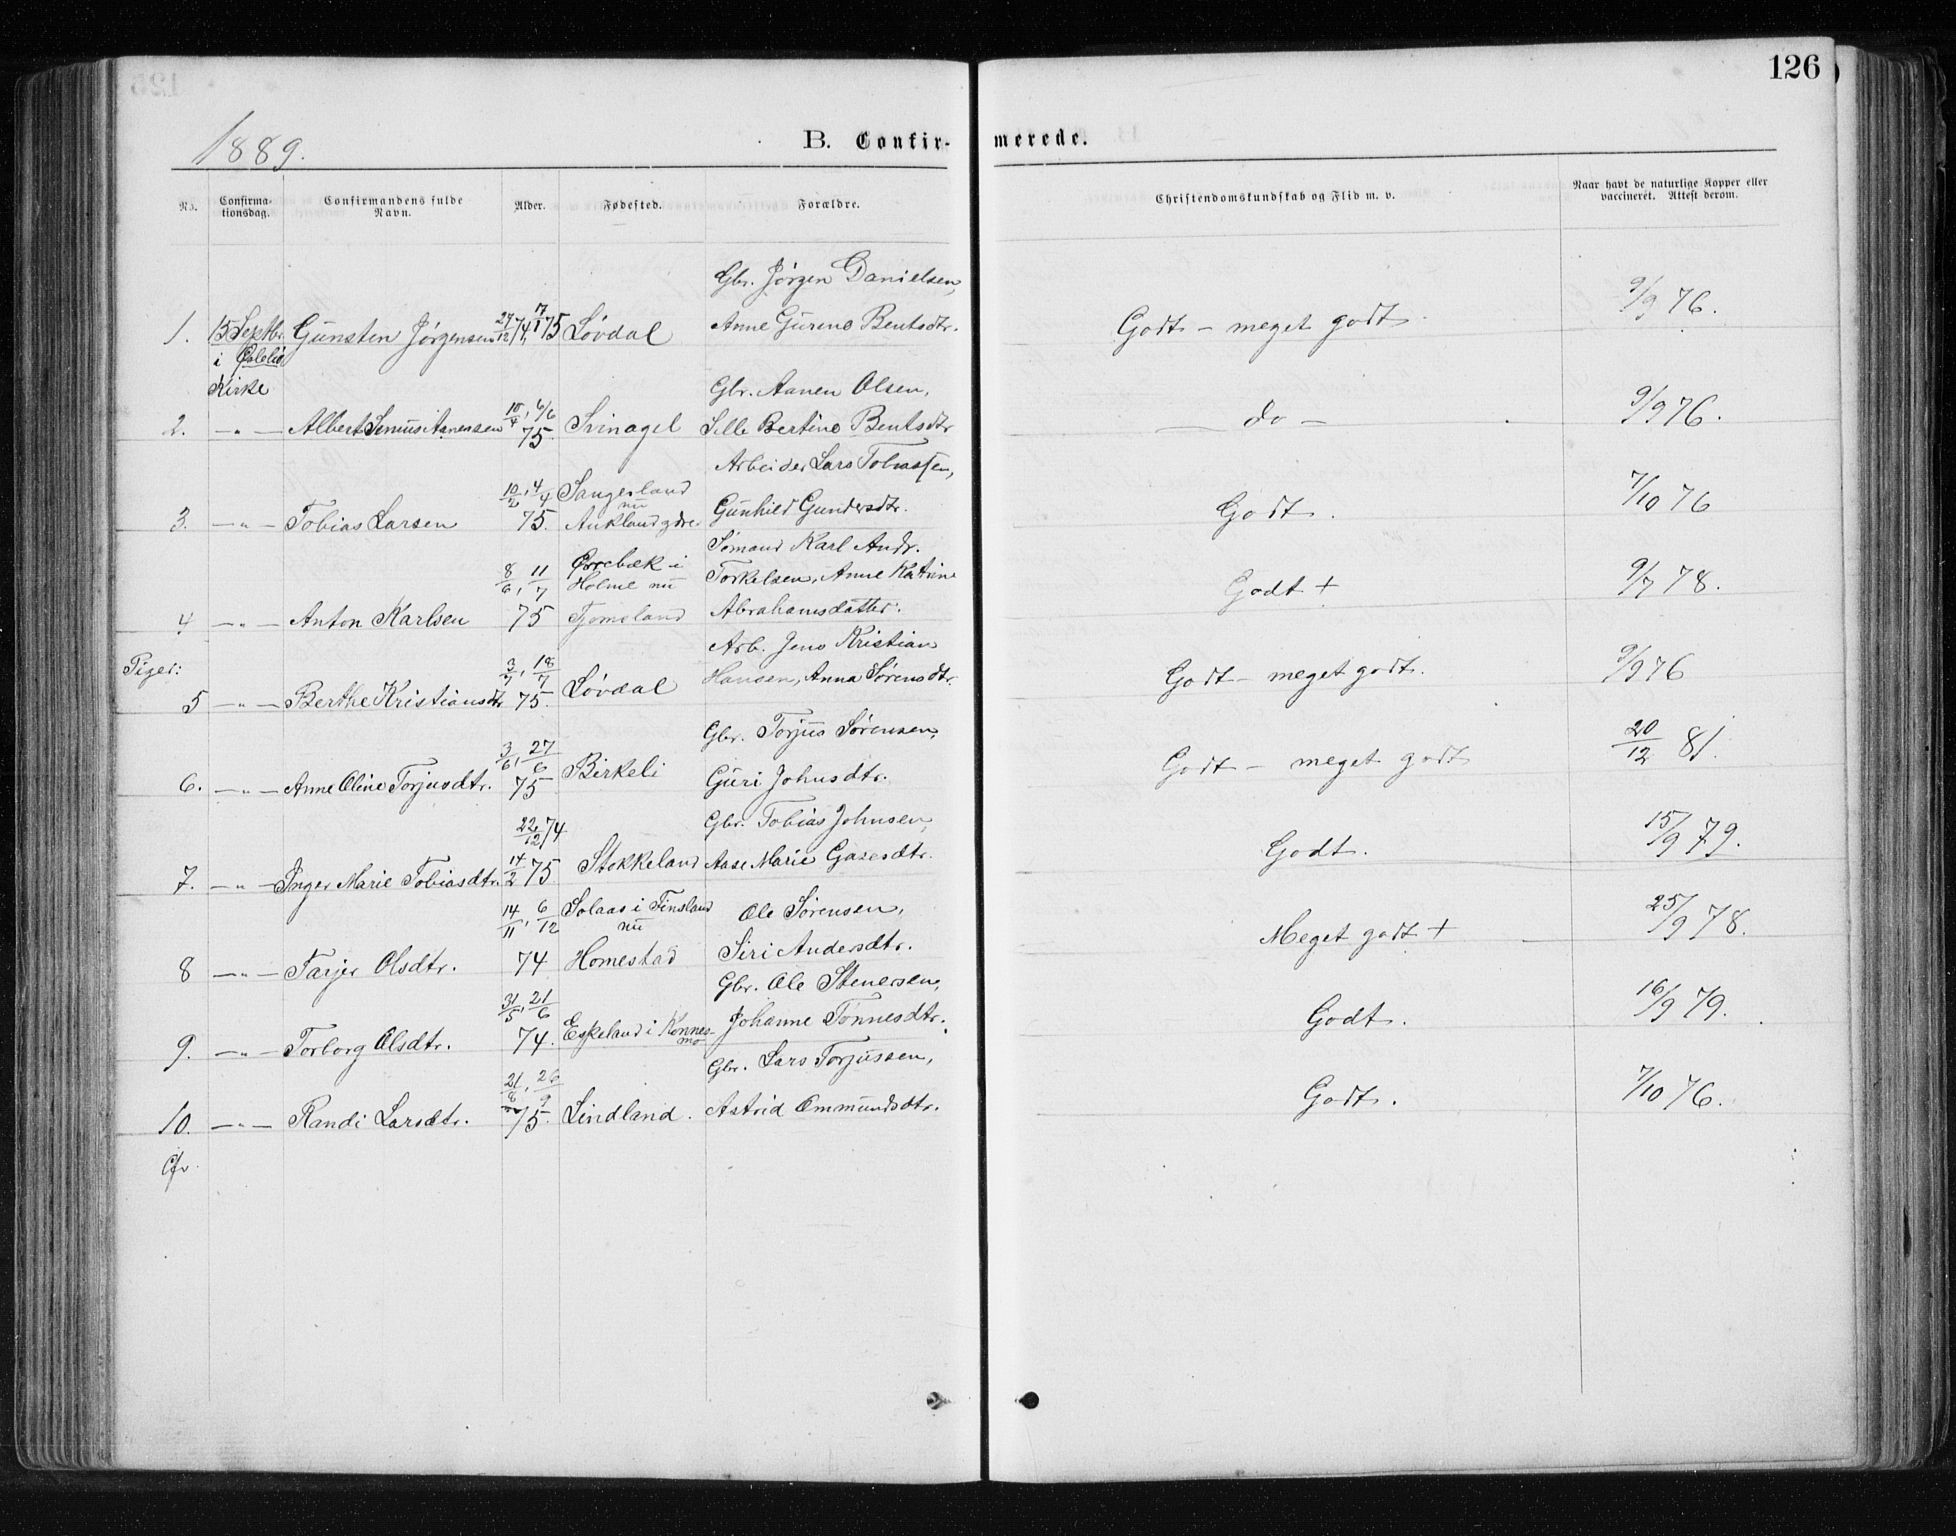 126
1889.
B. Confirmerede.
No. Confirmationsdag. Confirmandens fulde Navn. Alder. Fødested. Forældre. Christendomskundskab og Flid m. v. Naar havt de naturlige Kopper eller vaccineret. Attest derom.
Gbr. Jörgen Danielsen,
1. 15 Septbr. Gunsten Jörgensen 27/12 74, 17/1 75 Lövdal Anne Gurine Bentsdtr. Godt - meget godt. 9/9 76.
i Øslebø
Kirke
Gbr. Aanen Olsen,
2. -"- Albert Aanensen 10/4, 6/6 75. Svinagel Sille Bertine Bentsdtr. do - 9/9 76.
Arbeider Lars Tobiassen,
3. -"- Tobias Larsen 10/2, 4/4 75. Sangesland nu Auklandydre Gunhild Gundersdtr. Godt. 7/10 76
Sømand Karl Andr.
Ørrebæk i
8/6, 11/7 Holme nu Torkelsen, Anne Katrine Godt + 9/7 78.
4 -"- Anton Karlsen 75 Tjomsland Abrahamsdatter.
Piger:
Arb. Jens Kristian
5 -"- Berthe Kristiansdtr. 3/7, 18/7 75. Lövdal Hansen, Anna Sörensdtr. Godt - meget godt. 9/9 76
Gbr. Torjus Sörensen,
6. -"- Anne Oline Torjusdtr. 3/6, 27/6 75 Birkeli Guri Johnsdtr. Godt - meget godt 20/12 81.
Gbr. Tobias Johnsen,
7. -"- Inger Marie Tobiasdtr. 22/12 74 14/2 75. Stokkeland Aase Marie Gasesdtr. Godt. 15/9 79.
14/11, 6/12 Solaas i Finsland nu Ole Sörensen,
8 -"- Tarjer Olsdtr. 74 Homestad Siri Andersdtr. Meget godt + 25/9 78.
Gbr. Ole Stenersen,
9. -"- Torborg Olsdtr. 31/5, 21/6 74. Eskeland i Konnesmo Johanne Tönnesdtr. Godt. 16/9 79.
Gbr. Lars Torjussen,
10. -"- Randi Larsdtr. 21/8, 26/9 75. Lindland. Astrid Ommundsdtr. Godt. 7/10 76.